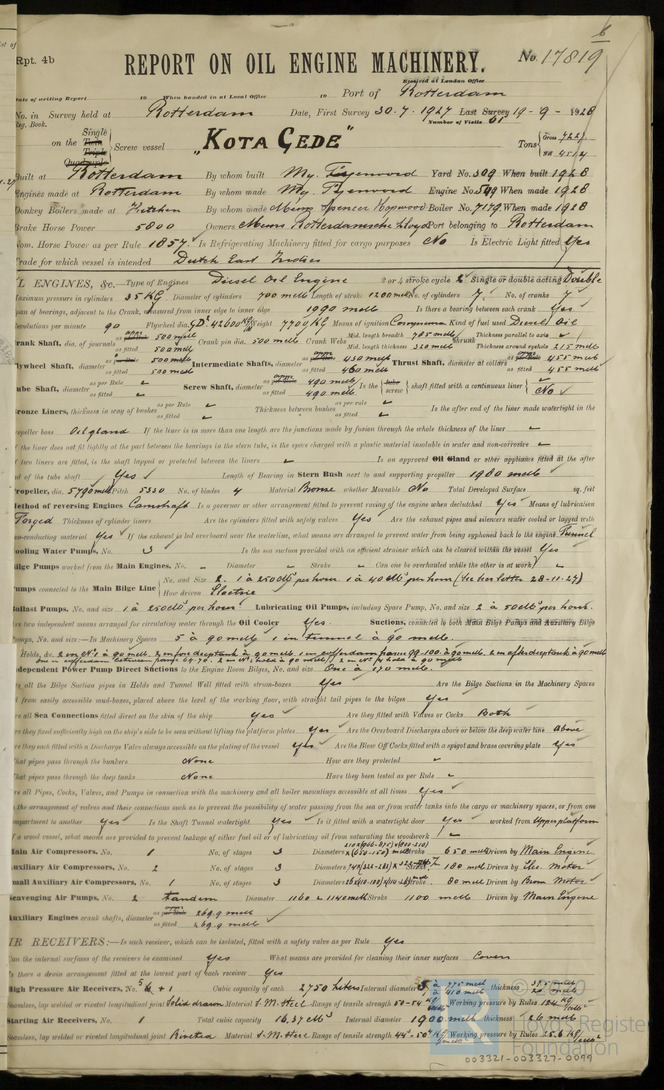 6
Rpt. 4b
REPORT ON OIL ENGINE MACHINERY.
No. 17819
Received at London Office
Date of writing Report 19 When handed in at Local Office 19 Port of Rotterdam
No. in Survey held at Rotterdam Date, First Survey 30-7-1927 Last Survey 19-9-1928
Reg. Book. Number of Visits
on the Single Twin Triple Quadruple Screw vessel "KOTA GEDE" Tons Gross Net
Built at Rotterdam By whom built Yard No. 509 When built 1928
Engines made at Rotterdam By whom made Engine No. 509 When made 1928
Donkey Boilers made at Hitchin By whom made Spencer Hopwood Boiler No. 7179 When made 1928
Brake Horse Power 5800 Owners Rotterdamsche Lloyd Port belonging to Rotterdam
Nom. Horse Power as per Rule 1857 Is Refrigerating Machinery fitted for cargo purposes No Is Electric Light fitted Yes
Trade for which vessel is intended Dutch East Indies
OIL ENGINES, &c.—Type of Engines Diesel Oil Engine 2 or 4 stroke cycle 2 Single or double acting Double
Maximum pressure in cylinders 35 KG Diameter of cylinders 700 Length of stroke 1200 No. of cylinders 7 No. of cranks 7
Span of bearings, adjacent to the Crank, measured from inner edge to inner edge 1090 Is there a bearing between each crank Yes
Revolutions per minute 90 Flywheel dia. Weight 7700 KG Means of ignition Compression Kind of fuel used Diesel Oil
Crank Shaft, dia. of journals as fitted 500 Crank pin dia. 500 Crank Webs Mid. length breadth 785 Mid. length thickness 320 Thickness parallel to axis Thickness around eyehole 215
Flywheel Shaft, diameter as fitted 500 Intermediate Shafts, diameter as fitted 460 Thrust Shaft, diameter at collars as fitted 455
Tube Shaft, diameter as per Rule as fitted Screw Shaft, diameter as fitted 490 Is the tube screw shaft fitted with a continuous liner No
Bronze Liners, thickness in way of bushes as per Rule as fitted Thickness between bushes as per rule as fitted Is the after end of the liner made watertight in the
propeller boss Oil gland If the liner is in more than one length are the junctions made by fusion through the whole thickness of the liner
If the liner does not fit tightly at the part between the bearings in the stern tube, is the space charged with a plastic material insoluble in water and non-corrosive
If two liners are fitted, is the shaft lapped or protected between the liners Is an approved Oil Gland or other appliance fitted at the after
end of the tube shaft Yes Length of Bearing in Stern Bush next to and supporting propeller 1980
Propeller, dia. 5790 Pitch 5350 No. of blades 4 Material Bronze whether Moveable No Total Developed Surface sq. feet
Method of reversing Engines Camshaft Is a governor or other arrangement fitted to prevent racing of the engine when declutched Yes Means of lubrication
Forced Thickness of cylinder liners Are the cylinders fitted with safety valves Yes Are the exhaust pipes and silencers water cooled or lagged with
non-conducting material Yes If the exhaust is led overboard near the waterline, what means are arranged to prevent water from being syphoned back to the engine Funnel
Cooling Water Pumps, No. 3 Is the sea suction provided with an efficient strainer which can be cleared within the vessel Yes
Bilge Pumps worked from the Main Engines, No. Diameter Stroke Can one be overhauled while the other is at work
Pumps connected to the Main Bilge Line No. and Size 2. 1 à 250 per hour 1 à 40 per hour
How driven Electric
Ballast Pumps, No. and size 1 à 250 per hour Lubricating Oil Pumps, including Spare Pump, No. and size 2 à 50 per hour
Are two independent means arranged for circulating water through the Oil Cooler Yes Suctions, connected to both Main Bilge Pumps and Auxiliary Bilge
Pumps, No. and size:—In Machinery Spaces 5 à 90 1 in tunnel à 90
Independent Power Pump Direct Suctions to the Engine Room Bilges, No. and size One à 170
Are all the Bilge Suction pipes in Holds and Tunnel Well fitted with strum-boxes Yes Are the Bilge Suctions in the Machinery Spaces
led from easily accessible mud-boxes, placed above the level of the working floor, with straight tail pipes to the bilges Yes
Are all Sea Connections fitted direct on the skin of the ship Yes Are they fitted with Valves or Cocks Both
Are they fixed sufficiently high on the ship's side to be seen without lifting the platform plates Yes Are the Overboard Discharges above or below the deep water line Above
Are they each fitted with a Discharge Valve always accessible on the plating of the vessel Yes Are the Blow Off Cocks fitted with a spigot and brass covering plate Yes
What pipes pass through the bunkers None How are they protected
What pipes pass through the deep tanks None Have they been tested as per Rule
Are all Pipes, Cocks, Valves, and Pumps in connection with the machinery and all boiler mountings accessible at all times Yes
Is the arrangement of valves and their connections such as to prevent the possibility of water passing from the sea or from water tanks into the cargo or machinery spaces, or from one
compartment to another Yes Is the Shaft Tunnel watertight Yes Is it fitted with a watertight door Yes worked from Upper platform
If a wood vessel, what means are provided to prevent leakage of either fuel oil or of lubricating oil from saturating the woodwork
Main Air Compressors, No. 1 No. of stages 3 Diameters Stroke 650 Driven by Main Engine
Auxiliary Air Compressors, No. 2 No. of stages 3 Diameters Stroke 180 Driven by Elec. Motor
Small Auxiliary Air Compressors, No. 1 No. of stages 3 Diameters Stroke 80 Driven by Motor
Scavenging Air Pumps, No. 2 tandem Diameter 1160 & 1140 Stroke 1100 Driven by Main Engine
Auxiliary Engines crank shafts, diameter as fitted 269.9
AIR RECEIVERS:—Is each receiver, which can be isolated, fitted with a safety valve as per Rule Yes
Can the internal surfaces of the receivers be examined Yes What means are provided for cleaning their inner surfaces Covers
Is there a drain arrangement fitted at the lowest part of each receiver Yes
High Pressure Air Receivers, No. 6 + 1 Cubic capacity of each 2750 liters Internal diameter thickness
Seamless, lap welded or riveted longitudinal joint Solid drawn Material S.M. Steel Range of tensile strength 50-54 Working pressure by Rules
Starting Air Receivers, No. 1 Total cubic capacity 16.37 Internal diameter 1900 thickness 26
Seamless, lap welded or riveted longitudinal joint Riveted Material S.M. Steel Range of tensile strength 44-50 Working pressure by Rules 25.6
© 2020
Lloyd's Register
Foundation
003321-003327-0099